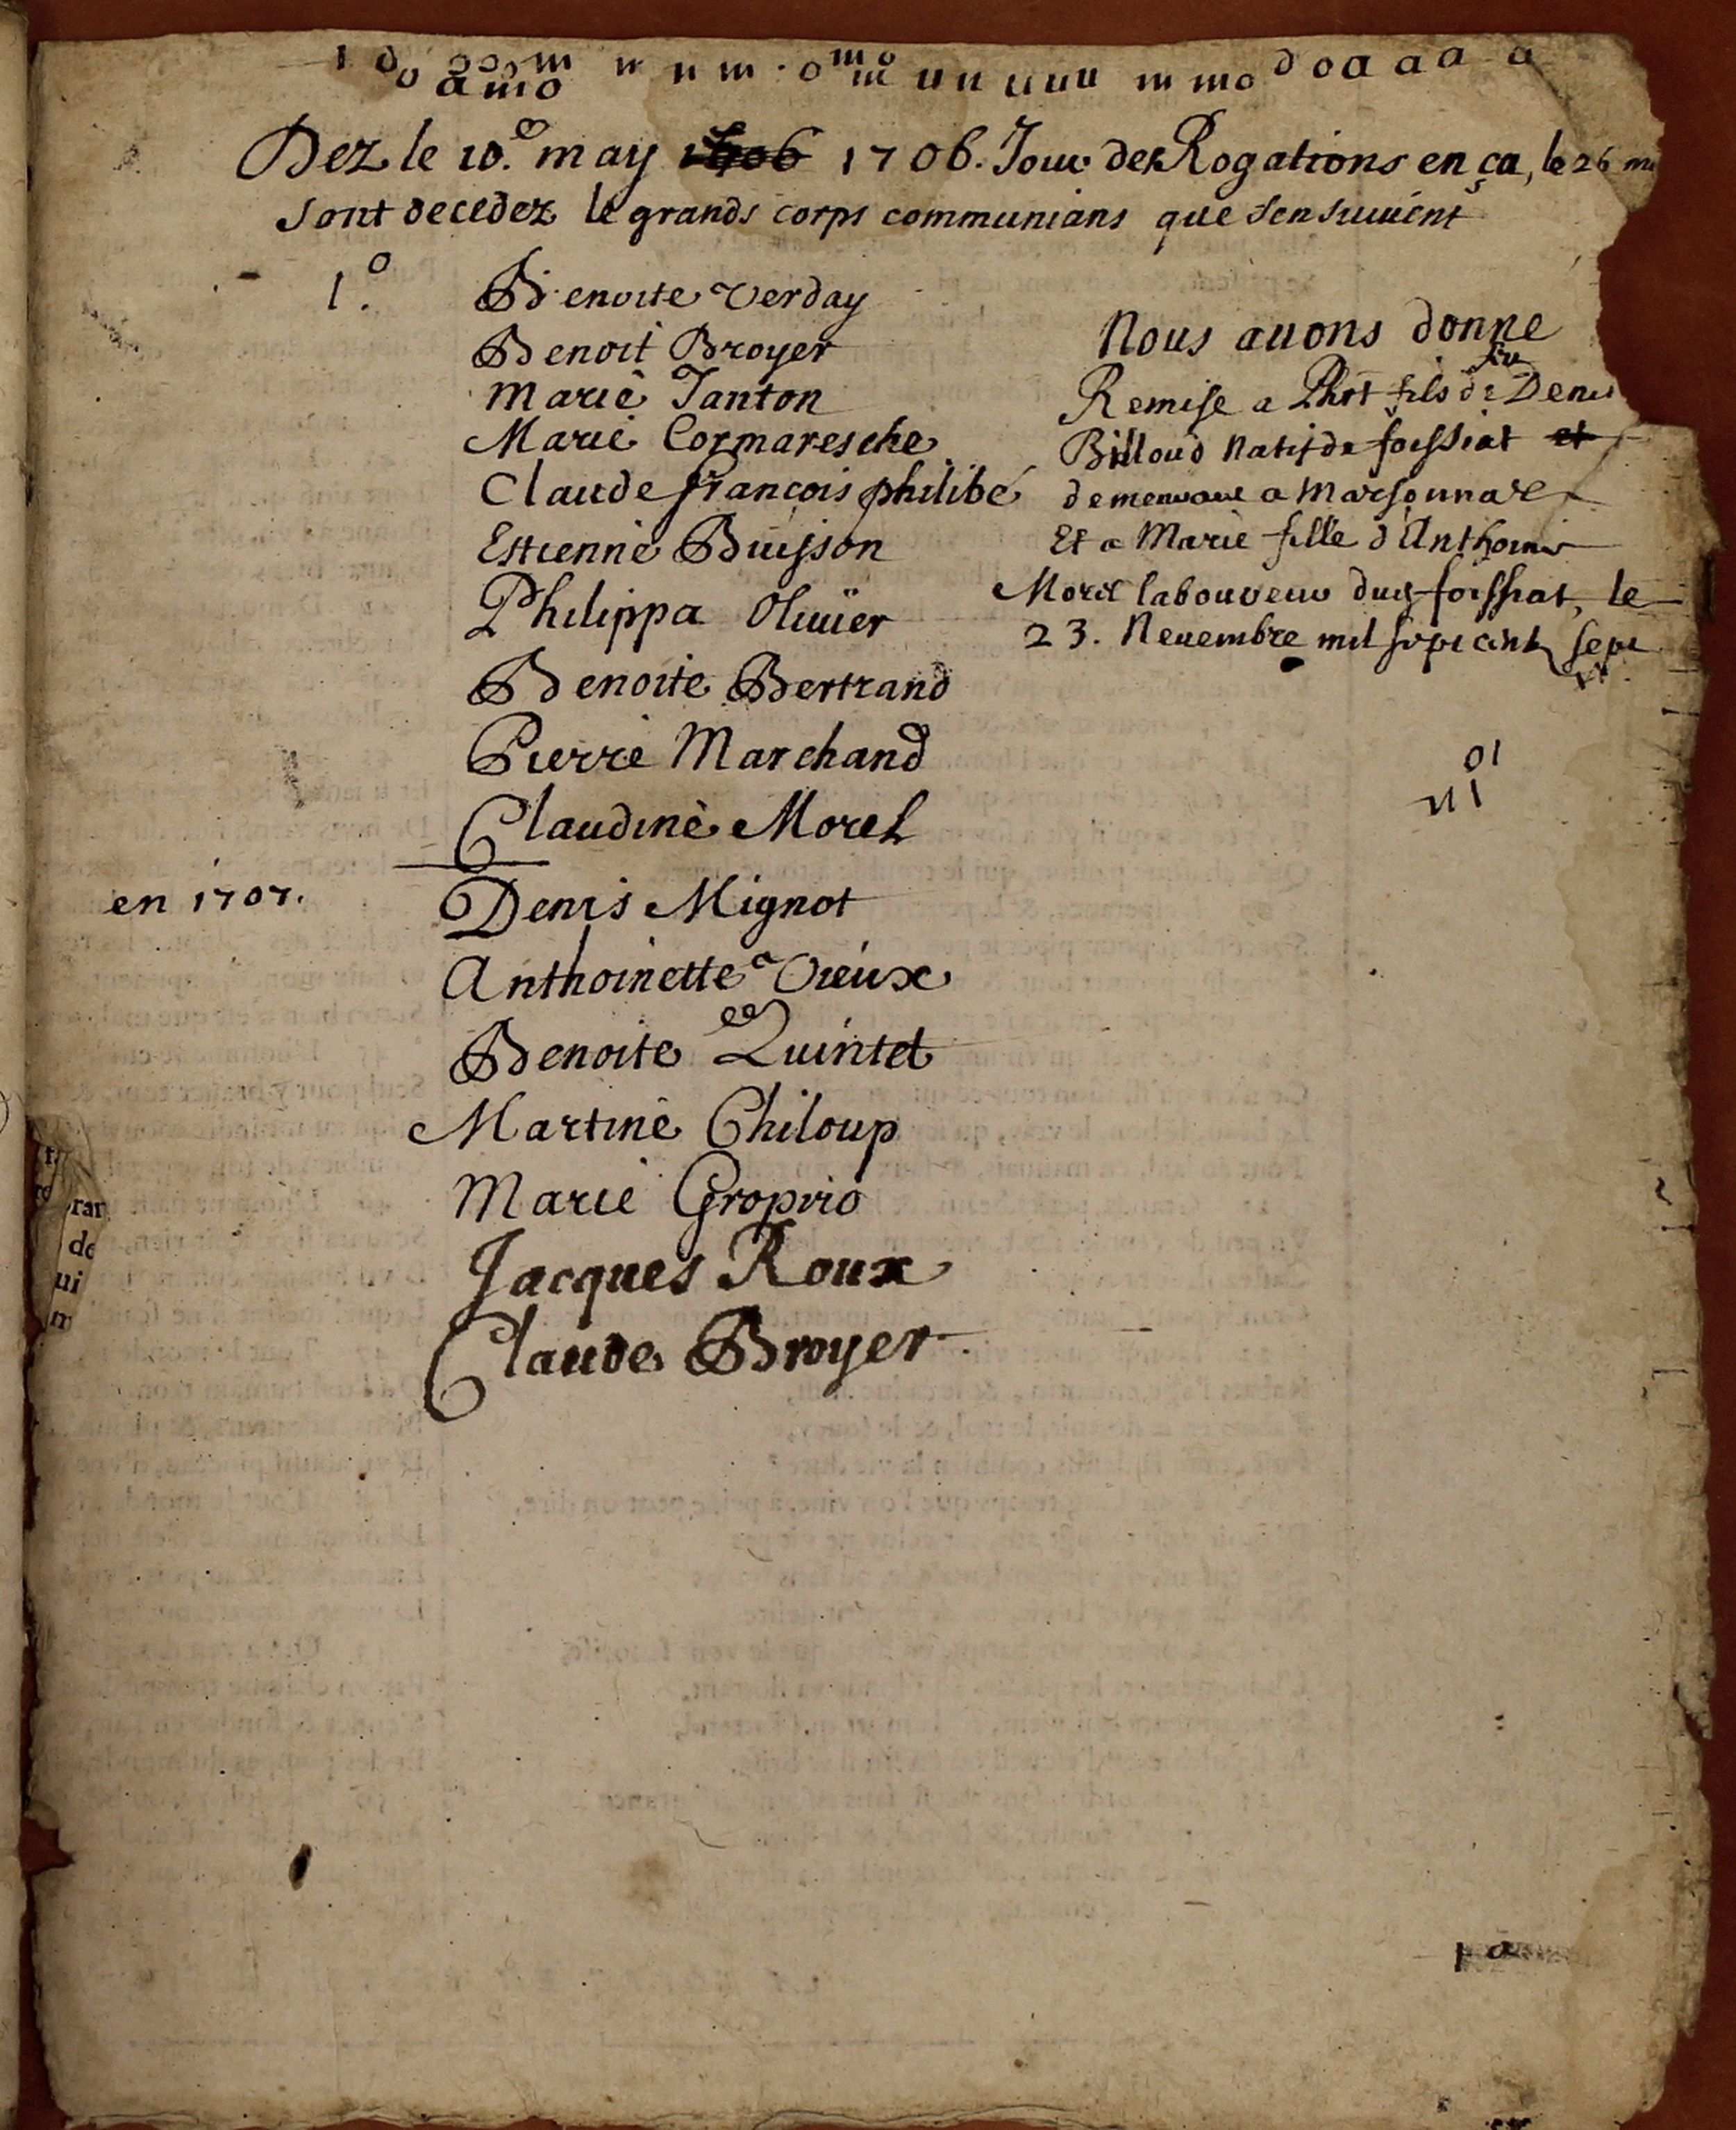 Dez le 10.e may 1706. Jour des Rogations en ça, le 26
sont decedez le grands corps communians que sensuiuent
1.o Benoite Verday
Benoit Broyer
Marie Janton
Marie Cormaresche
Claude françois philibe
Estienne Buisson
Philippa Oliuier
Benoite Bertrand
Pierre Marchand
Claudine Morel
en 1707. Denis Mignot
Anthoinette Vieux
Benoite Quintet
Martine Chiloup
Marie Gropvio
Jacques Roux
Claude Broyer
Nous auons donne
Remise a Phot fils de feu Denis
Billoud natif de foissiat et
demeurant a Marsonnas
Et a Marie fille d'Anthoine
Morel laboureur dud foissiat, le
23. Nouembre mil sept cent sept